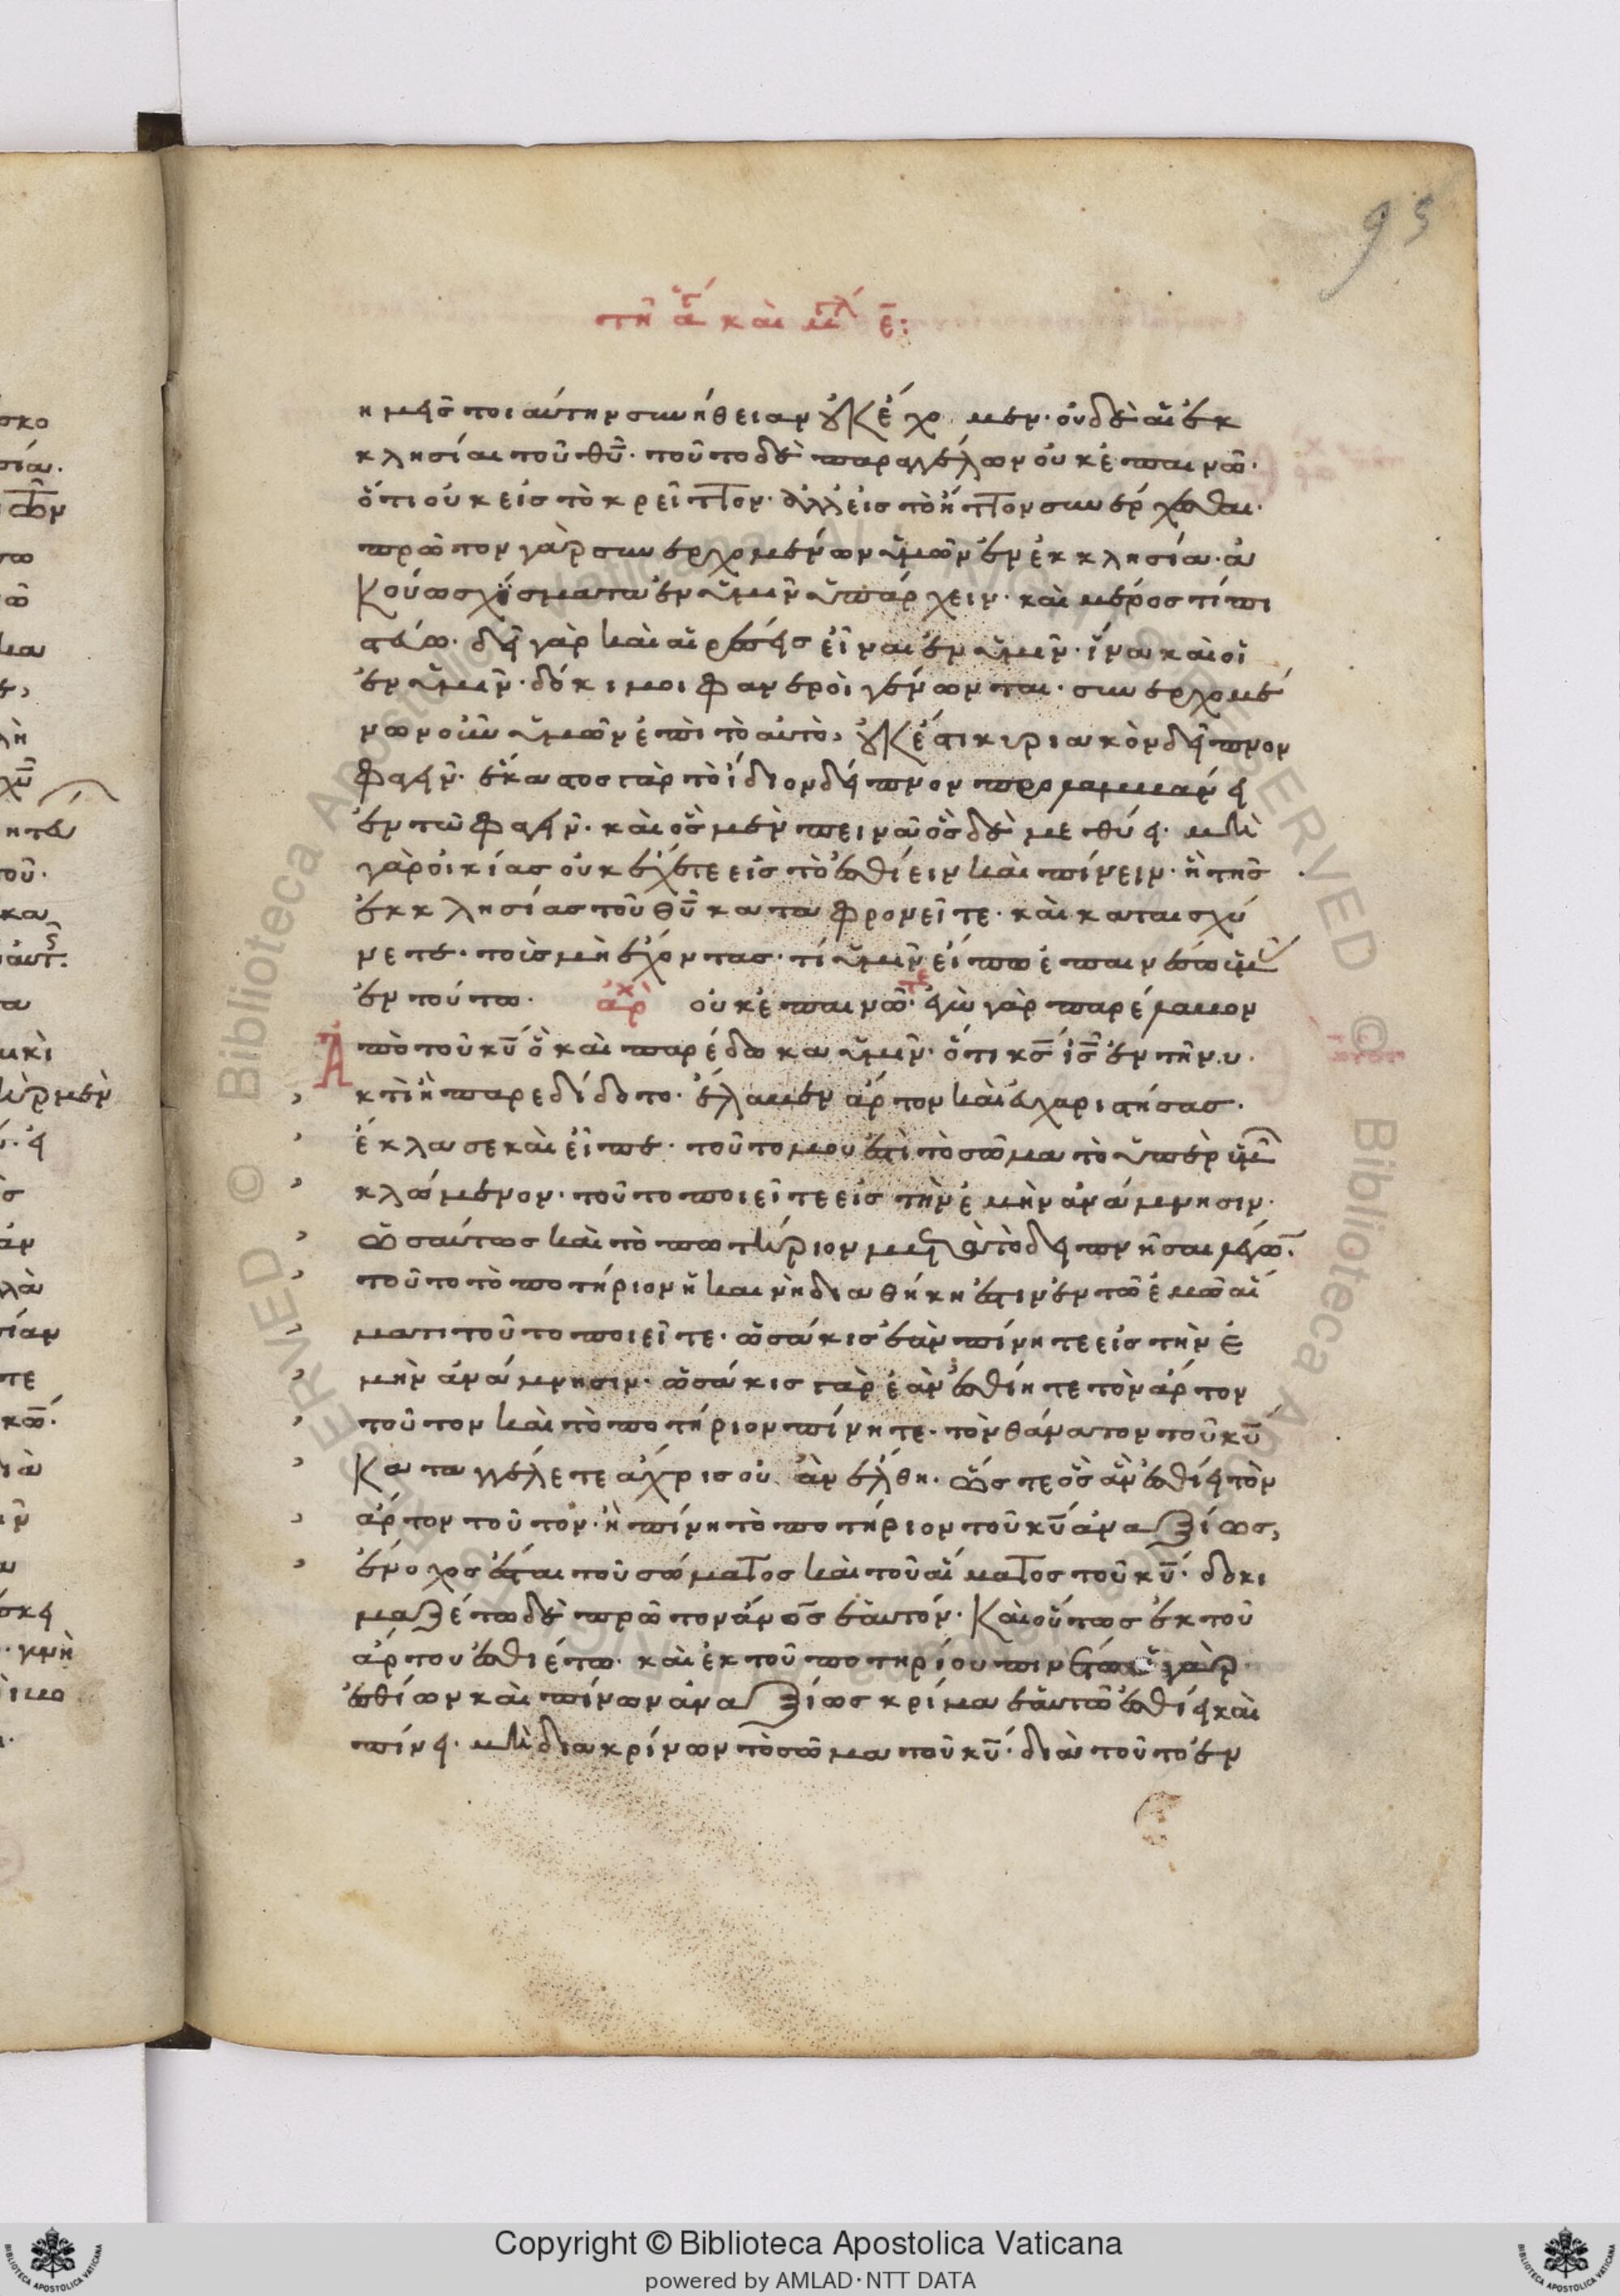 93
τῇ ἁγ́ καὶ μ̅γλ ε̅:
ημεῖς τοιαύτην συνήθειαν οὐκ ἔχομεν· οὐδὲ αἱ ἐκ
κλησίαι τοῦ θῦ· τοῦτο δὲ παραγγέλων οὐκ ἐπαινῶ·
ὅτι οὐκ εἰς τὸ κρεῖττον· ἀλλ εἰς τὸ ἧττον συνέρχεσθαι·
πρῶτον γὰρ συνερχομένων ὑμῶν ἐν ἐκκλησία· ἀ
κούω σχίσματα ἐν ὑμῖν ὑπάρχειν· καὶ μέρος τί πι
στεύω· δεῖ γὰρ καὶ αἱρέσεις εἶναι ἐν ὑμῖν· ἵνα καὶ οἱ
ἐν ὑμῖν· δόκιμοι φανεροὶ γένωνται· συνερχομέ
νων οὖν ὑμῶν ἐπὶ τὸ αὐτὸ, οὐκ έστι κυριακὸν δεῖπνον
φαγεῖν· ἕκαστος γὰρ τὸ ίδιον δείπνον προλαμβάνει
ἐν τῶ φαγεῖν· καὶ ὃς μὲν πεινᾶ ὃς δὲ μεθύει· μὴ
γὰρ οἰκίας οὐκ ἔχετε εἰς τὸ ἐσθίειν καὶ πίνειν· ἢ τῆς
ἐκκλησίας τοῦ θῦ καταφρονεῖτε· καὶ καταισχύ
νετε· τοὶς μὴ ἔχοντας· τί ὑμῖν εἴπω ἐπαινέσω ὑμᾶς
ἐν τούτω· ἀρχ̀ οὐκ ἐπαινῶ·τε ἐγὼ γὰρ παρέλαβον
Ἀπὸ τοῦ κῦ ὃ καὶ παρέδωκα ὑμῖν· ὅτι κς̅ ἰς̅ ἐν τῆ νυ
κτὶ ἧ παρεδίδοτο· ἔλαβεν ἄρτον καὶ εὐχαριστήσας·
ἔκλασε καὶ εἶπε· τοῦτο μου ἐστὶ τὸ σῶμα τὸ ὑπὲρ ὑμῶν
κλώμενον· τοῦτο ποιεῖτε εἰς τὴν ἐμὴν ἀνάμνησιν·
Ὡσαύτως καὶ τὸ ποτήριον μετὰ τὸ δειπνῆσαι λέγων·
τοῦτο τὸ ποτήριον ἡ καινὴ διαθήκη ἐστιν ἐν τῶ ἐμῶ αἵ
ματι τοῦτο ποιεῖτε· ὡσάκις ἐὰν πίνητε εἰς τὴν ἐ
μὴν ἀνάμνησιν· ὡσάκις γὰρ ἐὰν ἐσθίητε τὸν ἄρτον
τοῦτον καὶ τὸ ποτήριον πίνητε· τὸν θάνατον τοῦ κῦ
καταγγέλετε ἄχρις οὗ ἂν ἔλθη· ὥστε ὃς ἂν ἐσθίει τὸν
ἄρτον τοῦτον· ἢ πίνη τὸ ποτήριον τοῦ κῦ ἀναξίως,
ἔνοχος ἔσται τοῦ σώματος καὶ τοῦ αἵματος τοῦ κῦ· δοκι
μαζέτω δὲ πρῶτον ἄνος̅ ἑαυτόν· καὶ οὕτως ἐκ τοῦ
ἄρτου ἐσθιέτω· καὶ ἐκ τοῦ ποτηρίου πινέτω ὁ γὰρ
ἐσθίων καὶ πίνων ἀναξίως κρίμα ἑαυτῶ ἐσθίει καὶ
πίνει· μὴ διακρίνων τὸ σῶμα τοῦ κῦ· διὰ τοῦτο ἐν
Copyright © Biblioteca Apostolica Vaticana
powered by AMLAD·NTT DATA